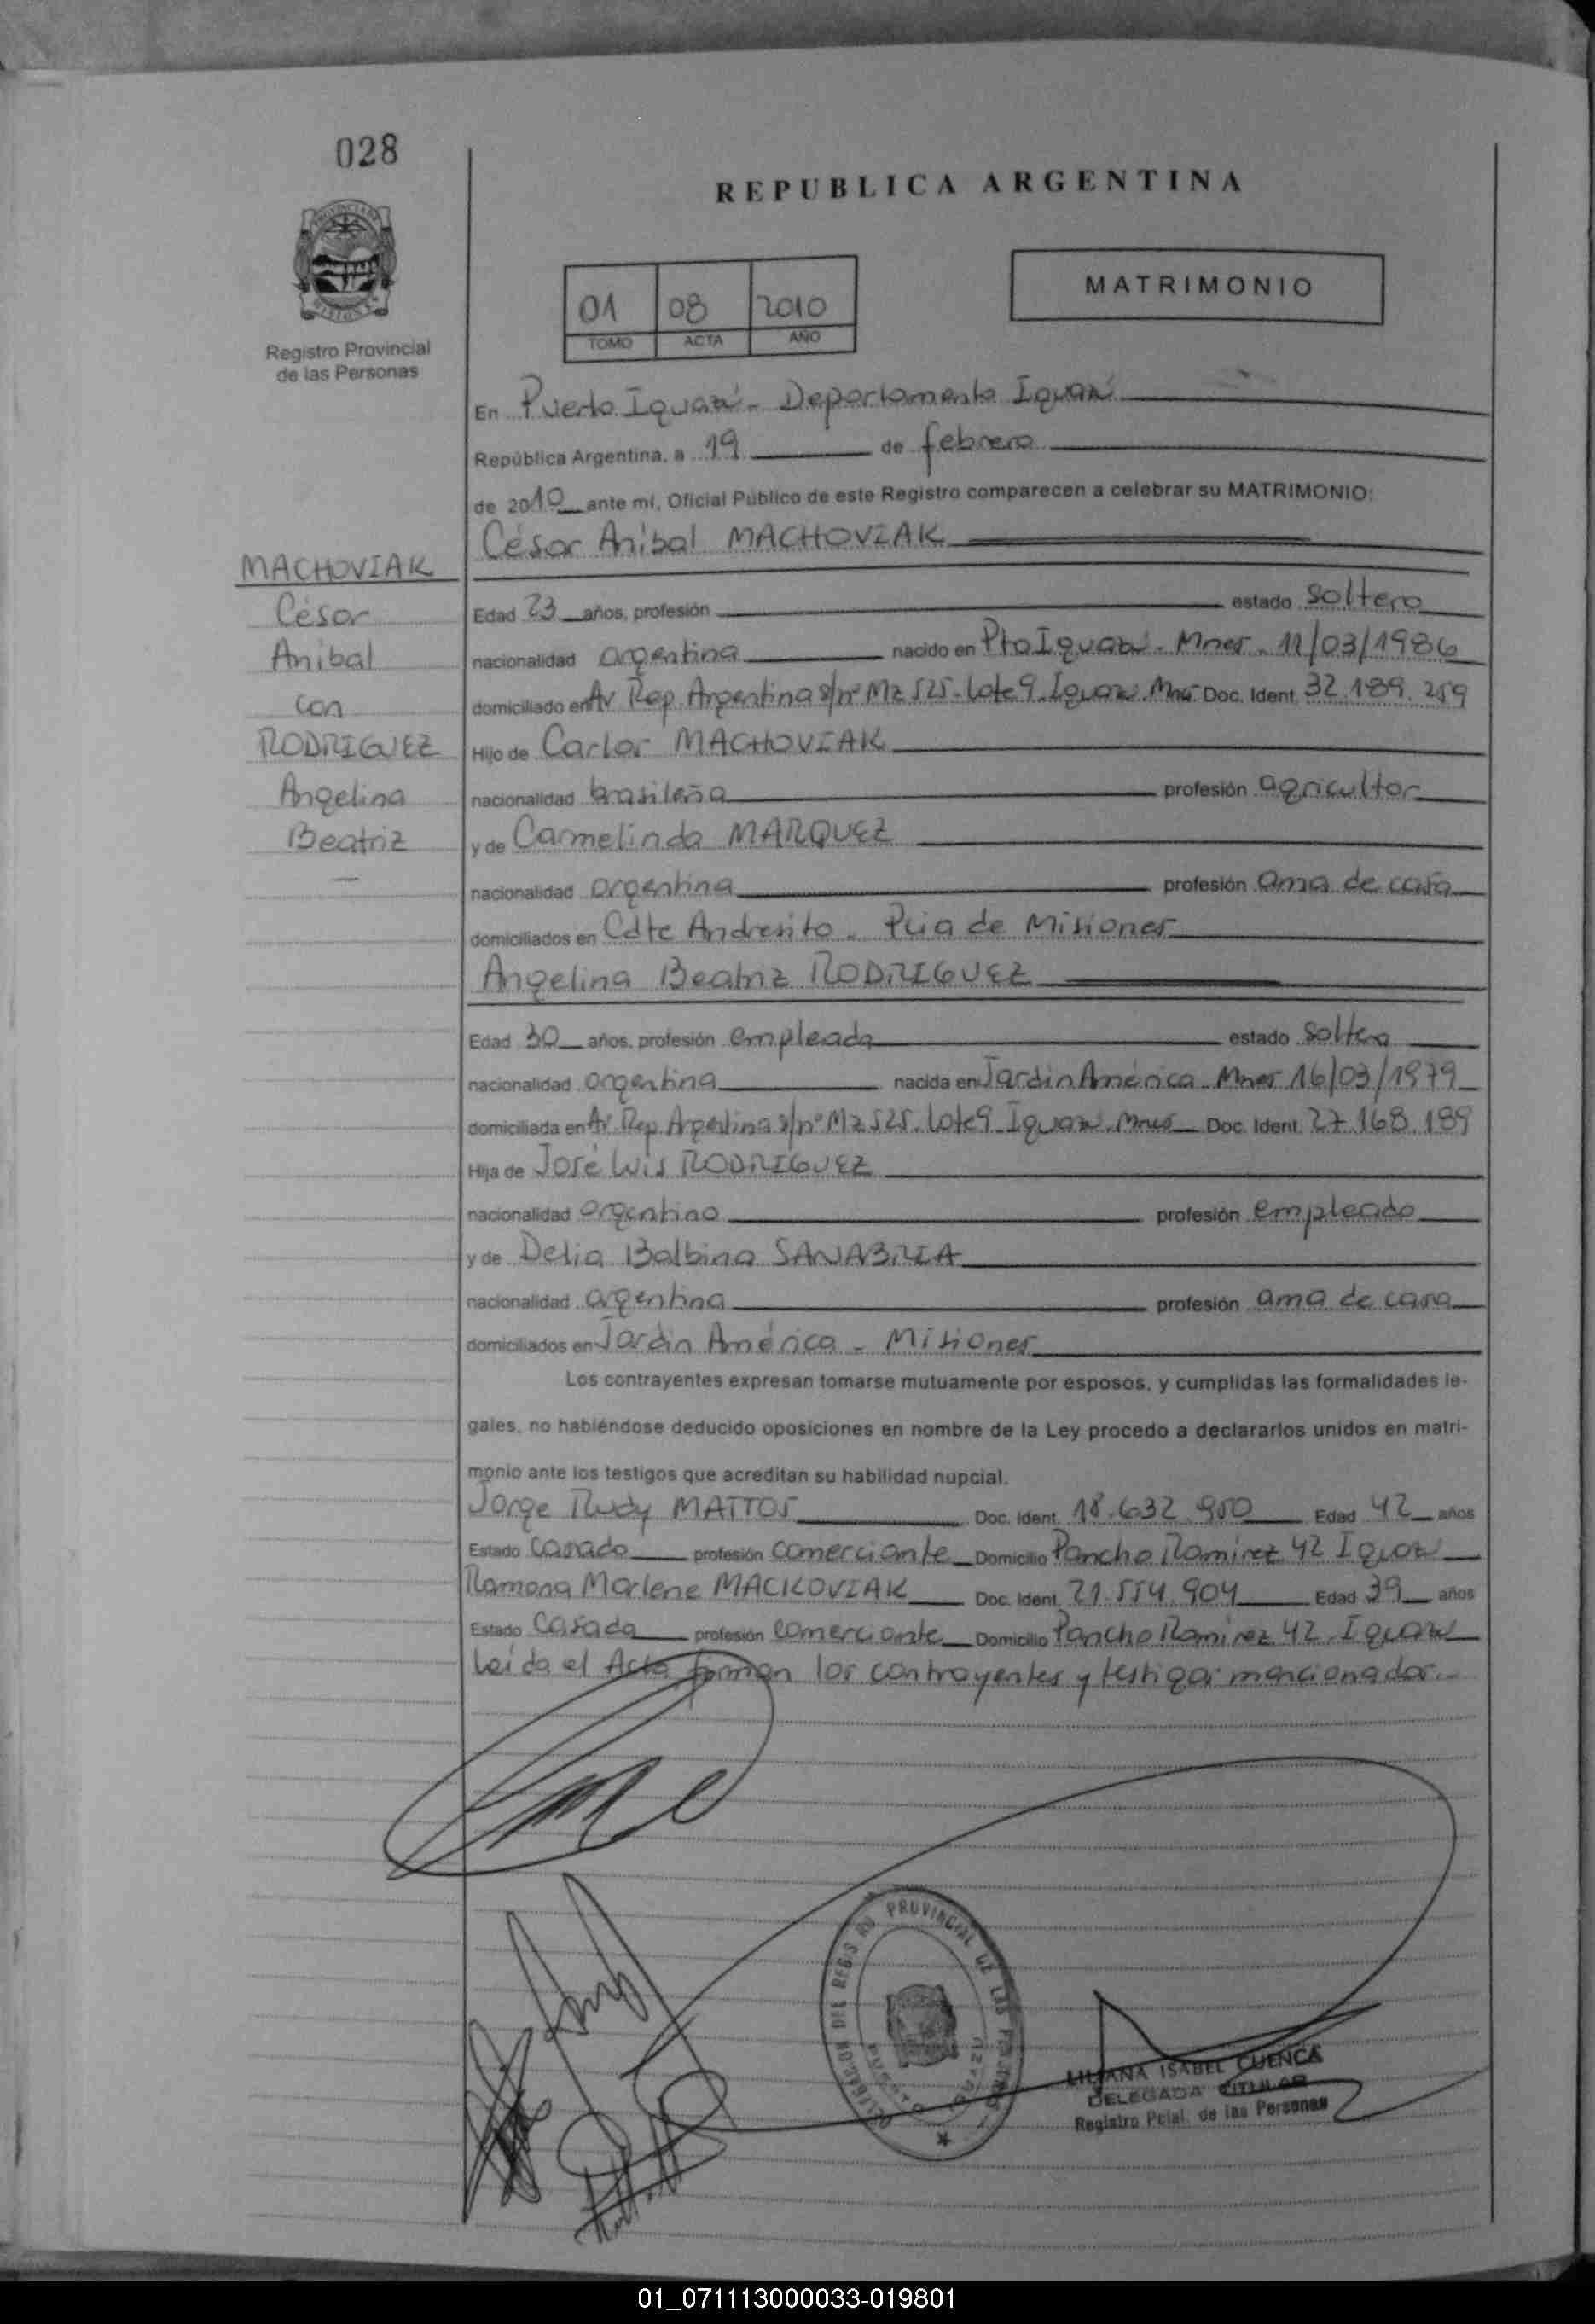 028
REPUBLICA ARGENTINA
Registro Provincial
de las Personas
01 08 2010
TOMO ACTA AÑO
MATRIMONIO
En Puerto Iguazú - Departamento Iguazú
República Argentina, a 19 de febrero
de 2010 ante mí, Oficial Público de este Registro comparecen a celebrar su MATRIMONIO:
César Anibal MACHOVIAK
MACHOVIAK
César
Anibal
con
RODRIGUEZ
Angelina
Beatriz
Edad 23 años, profesión estado soltero
nacionalidad argentina nacido en Pto Iguazú - Mnes - 11/03/1986
domiciliado en Av Rep. Argentina s/nº Mz 525 - Lote 9 - Iguazú Mnes Doc. Ident. 32.189.259
Hijo de Carlos MACHOVIAK
nacionalidad brasileña profesión agricultor
y de Carmelinda MARQUEZ
nacionalidad argentina profesión ama de casa
domiciliados en Cdte Andresito - Pcia de Misiones
Angelina Beatriz RODRIGUEZ
Edad 30 años, profesión empleada estado soltera
nacionalidad argentina nacida en Jardin América Mnes 16/03/1979
domiciliada en Av Rep Argentina s/nº Mz 525 - Lote 9 Iguazú - Mnes Doc. Ident. 27.168.189
Hija de José Luis RODRIGUEZ
nacionalidad argentino profesión empleado
y de Delia Balbina SANABRIA
nacionalidad argentina profesión ama de casa
domiciliados en Jardín América - Misiones
Los contrayentes expresan tomarse mutuamente por esposos, y cumplidas las formalidades le-
gales, no habiéndose deducido oposiciones en nombre de la Ley procedo a declararlos unidos en matri-
monio ante los testigos que acreditan su habilidad nupcial.
Jorge Rudy MATTOS Doc. Ident. 18.632.950 Edad 42 años
Estado casado profesión comerciante Domicilio Pancho Ramirez 42 Iguazú
Ramona Marlene MACKOVIAK Doc. Ident. 21.554.904 Edad 39 años
Estado Casada profesión comerciante Domicilio Pancho Ramirez 42 Iguazú
Leída el Acta firman los contrayentes y testigos mencionados.-
PROVINCIAL DE LAS
LILIANA ISABEL CUENCA
DELEGADA TITULAR
Registro Pcial. de las Personas
01_071113000033-019801